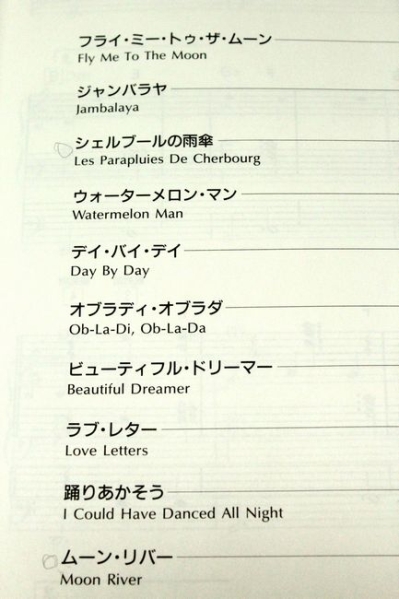 フライ・ミー・トゥ・ザ・ムーン
Fly Me To The Moon
ジャンバラヤ
Jambalaya
シェルブールの雨傘
Les Parapluies De Cherbourg
ウォーターメロン・マン
Watermelon Man
デイ・バイ・デイ
Day By Day
オブラディ・オブラダ
Ob-La-Di, Ob-La-Da
ビューティフル・ドリーマー
Beautiful Dreamer
ラブ・レター
Love Letters
踊りあかそう
I Could Have Danced All Night
ムーン・リバー
Moon River